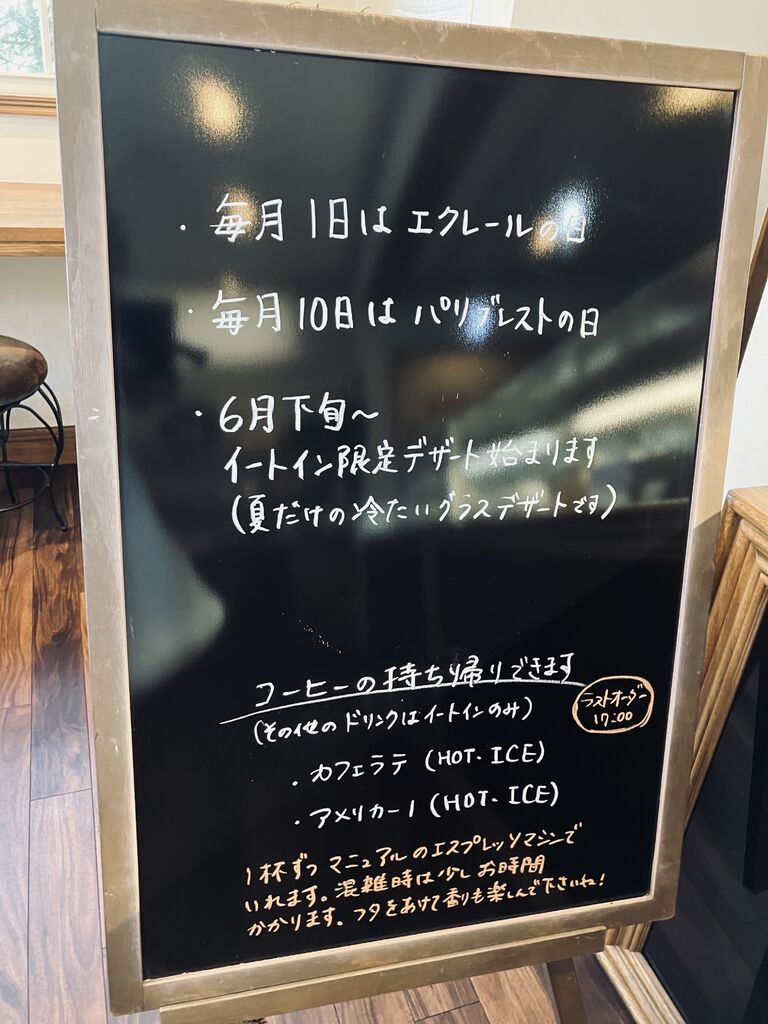 ・毎月1日は エクレールの日
・毎月10日は パリブレストの日
・6月下旬～
イートイン限定デザート始まります
(夏だけの冷たいグラスデザートです)
コーヒーの持ち帰りできます
(その他のドリンクはイートインのみ)
ラストオーダー
17:00
・カフェラテ (HOT・ICE)
・アメリカーノ (HOT・ICE)
1杯ずつ マニュアルのエスプレッソマシンで
いれます。混雑時は少しお時間
かかります。フタをあけて香りも楽しんで下さいね!